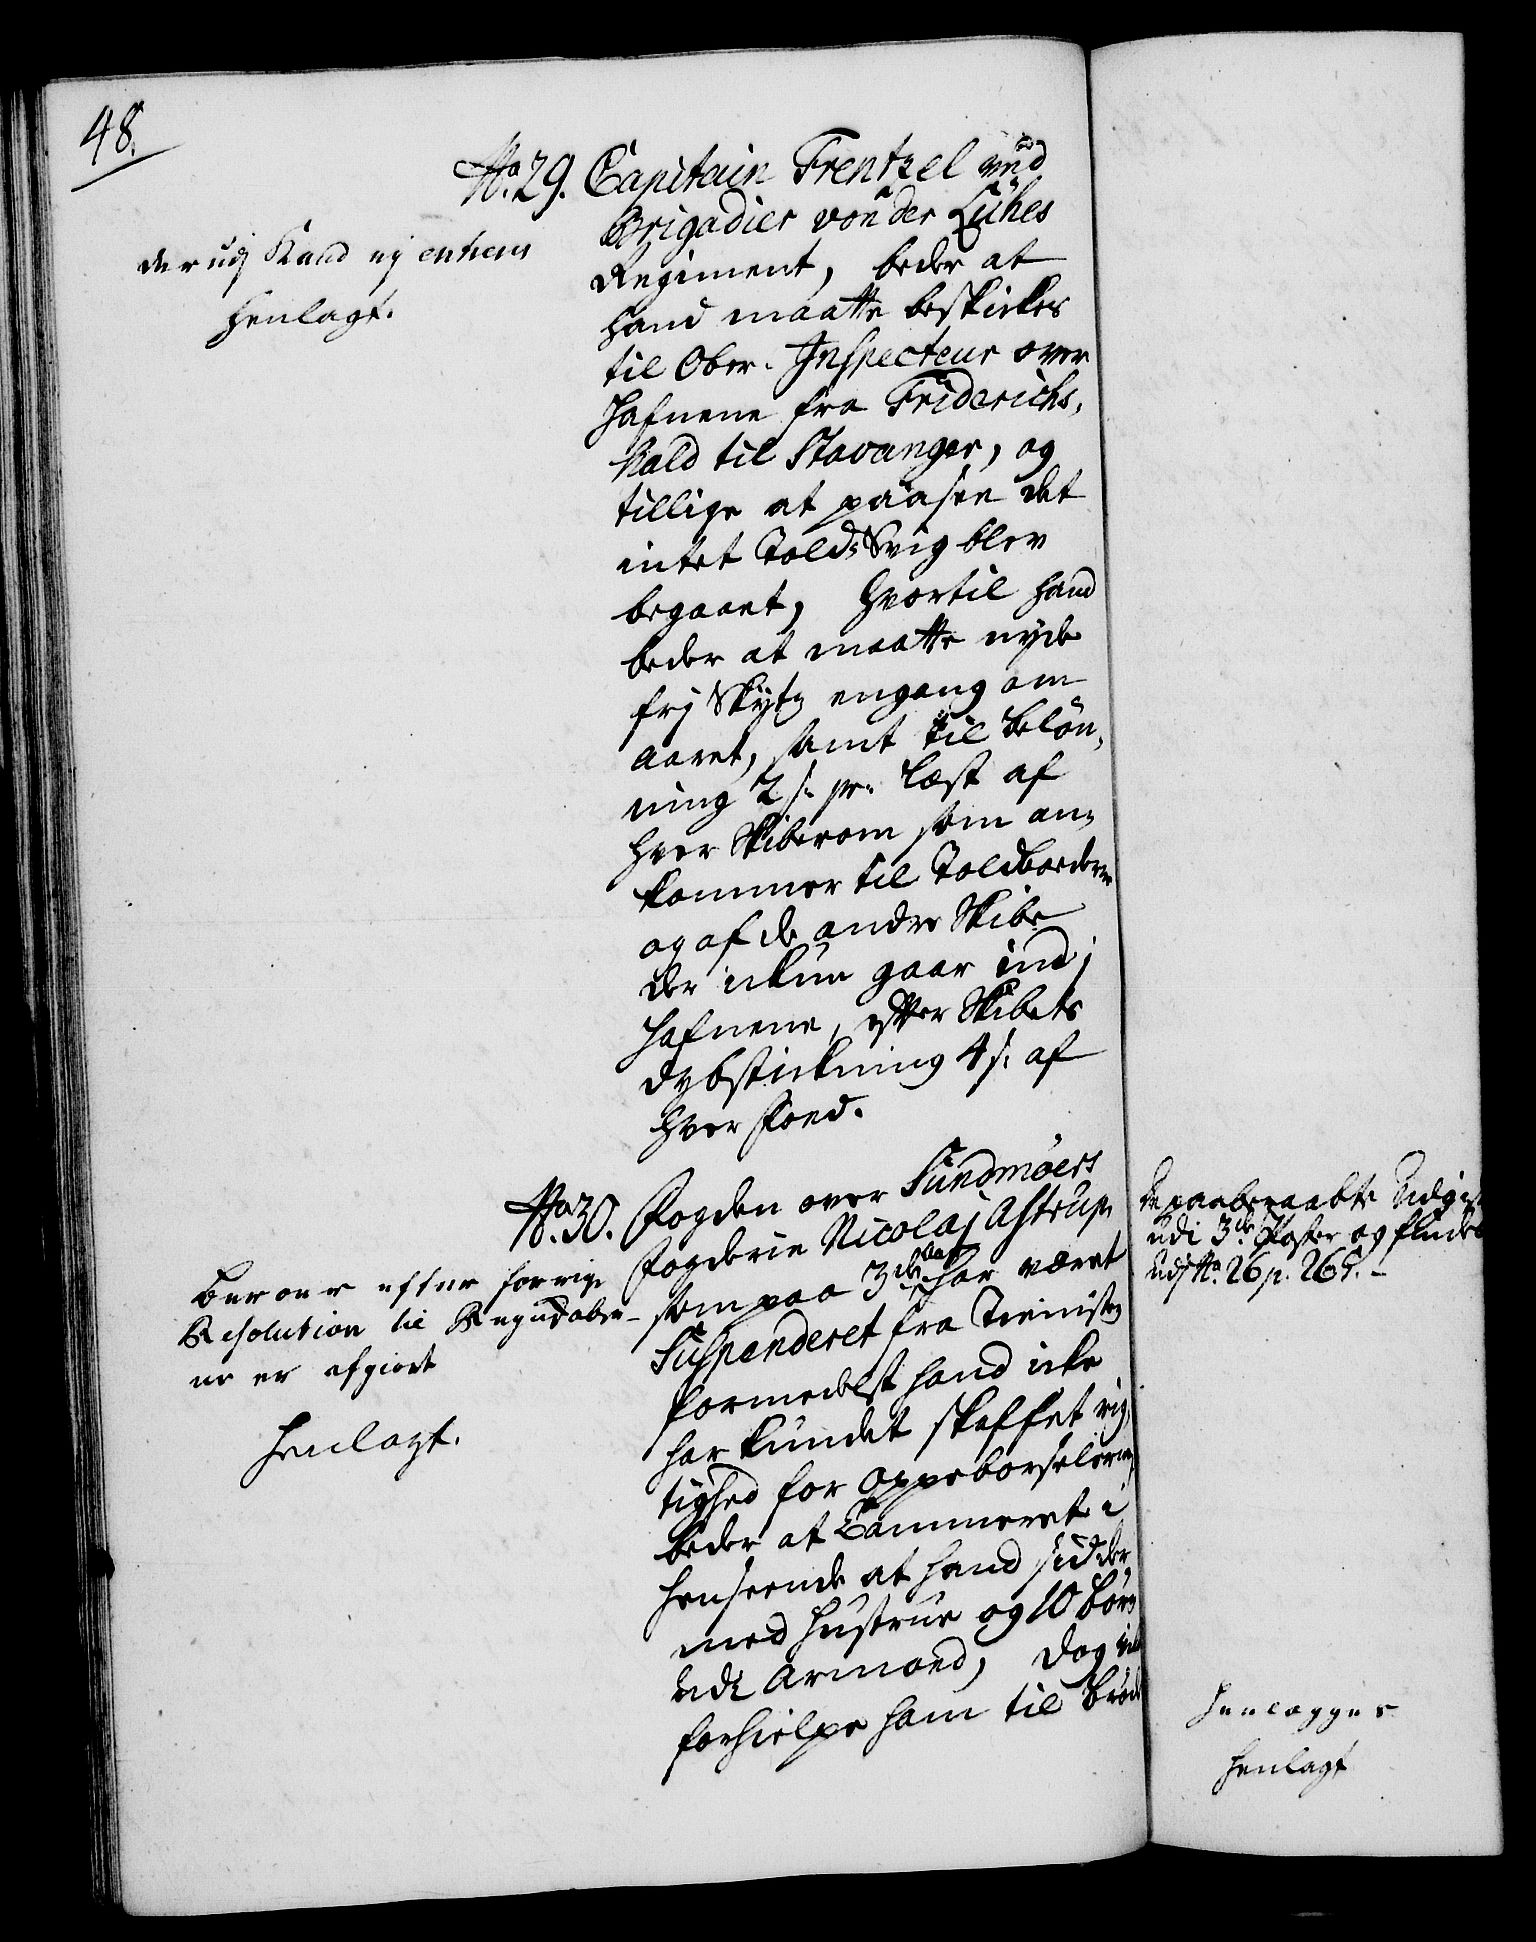 48.
No. 29. Capitain Frentzel ved
Brigadier von der Lühes
Regiment, beder at
hand maatte beskickes
til Ober-Inspecteur over
Hafnene fra Friderichs,
hald til Stavanger, og
tillige at paasee det
intet Told-Svig blev
begaaet, hvortil hand
beder at maatte nyde
frj Skytz engang om
aaret, samt til belön,
ning 2 s. pr. Læst af
hver Skiberom som an-
kommer til Toldboederne
og af de andre Skibe
der ickun gaar ind j
Hafnene, efter Skibets
dybstickning 4 s. af
hver Foed.
derudj Kand ej
henlagt.
No. 30. Fogden over Sundmöers
Fogderie Nicolaj Astrup
som paa 3de Aar har været
Suspenderet fra Tienisten
formedelst hand icke
har kundet skaffet rig,
tighed for oppebørselerne,
beder at Cammeret i
henseende at hand sidder
med Hustrue og 10 børn
udi Armoed, dog vil
forhielpe ham til brød
Beroer efter forrige
Resolution til Regnskabe-
ne er afgiort
henlagt.
de paaberaabte Udgift
udi 3de Poster og findes
udj No. 26 p. 265.
henlægges
henlagt